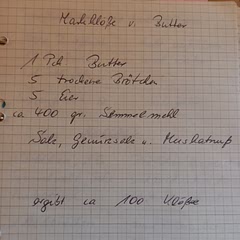 Markklöße v. Butter
1 Pck Butter
5 trockene Brötchen
5 Eier
ca 400 gr. Semmelmehl
Salz, Gewürzsalz u. Muskatnuß
ergibt ca 100 Klöße